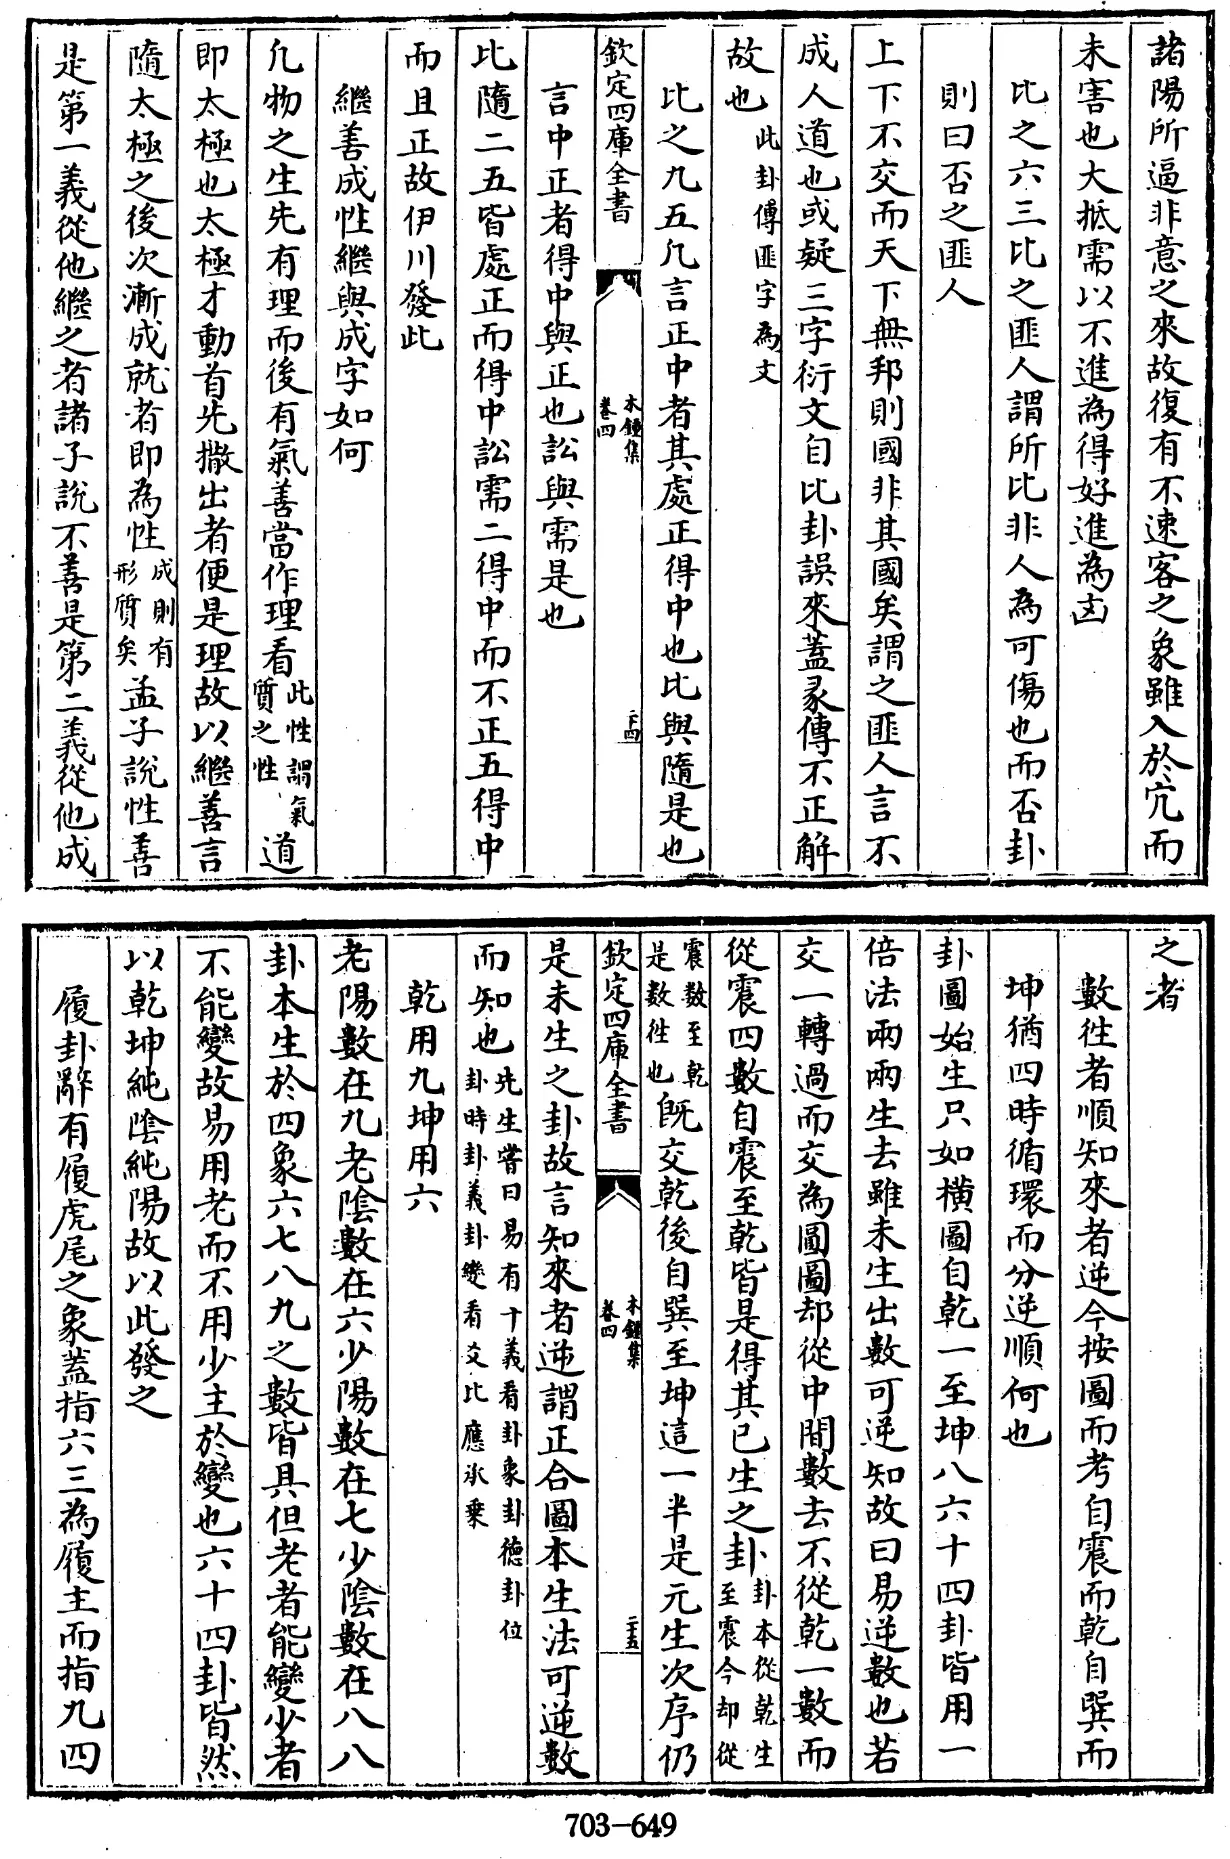 諸陽所逼非意之來故復有不速客之象雖入於宂而
未害也大抵需以不進為得好進為凶
比之六三比之匪人謂所比非人為可傷也而否卦
則曰否之匪人
上下不交而天下無邦則國非其國矣謂之匪人言不
成人道也或疑三字衍文自比卦誤來蓋彖傳不正解
故也此卦傳匪字為文
比之九五凡言正中者其處正得中也比與隨是也
欽定四庫全書 木鍾集 卷四 二十四
言中正者得中與正也訟與需是也
比隨二五皆處正而得中訟需二得中而不正五得中
而且正故伊川發此
繼善成性繼與成字如何
凡物之生先有理而後有氣善當作理看此性謂氣質之性道
即太極也太極才動首先撒出者便是理故以繼善言
隨太極之後次漸成就者即為性成則有形質矣孟子說性善
是第一義從他繼之者諸子說不善是第二義從他成
之者
數徃者順知來者逆今按圖而考自震而乾自巽而
坤猶四時循環而分逆順何也
卦圖始生只如橫圖自乾一至坤八六十四卦皆用一
倍法兩兩生去雖未生出數可逆知故曰易逆數也若
交一轉過而交為圓圖却從中間數去不從乾一數而
從震四數自震至乾皆是得其已生之卦卦本從乾生至震今却從
震數至乾是數徃也既交乾後自巽至坤這一半是元生次序仍
欽定四庫全書 木鍾集 卷四 二十五
是未生之卦故言知來者逆謂正合圖本生法可逆數
而知也先生嘗曰易有十義看卦象卦德卦位卦時卦義卦變看爻比應承乗
乾用九坤用六
老陽數在九老陰數在六少陽數在七少陰數在八八
卦本生於四象六七八九之數皆具但老者能變少者
不能變故易用老而不用少主於變也六十四卦皆然
以乾坤純陰純陽故以此發之
履卦辭有履虎尾之象葢指六三為履主而指九四
703-649